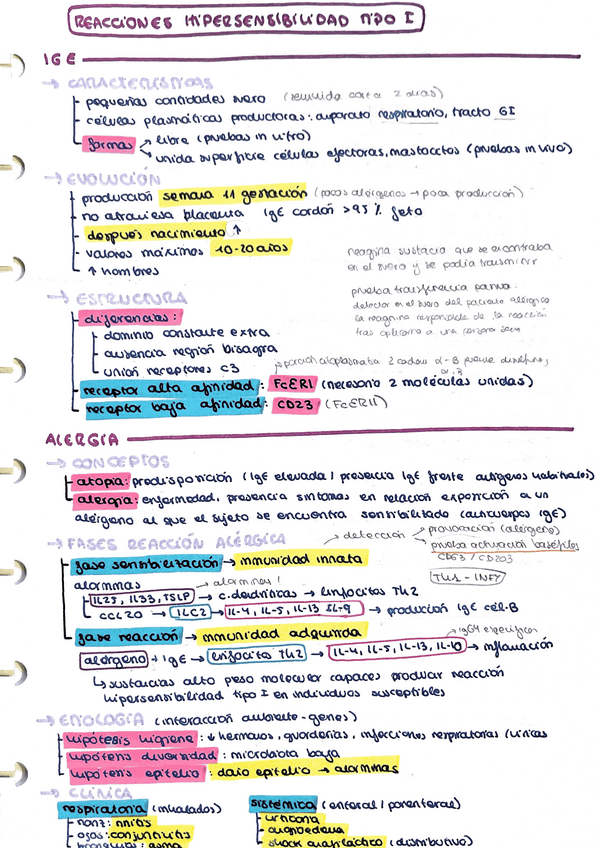 REACCIONES HIPERSENSIBILIDAD TIPO I
IGE
→ CARACTERÍSTICAS
pequeñas cantidades suero (semivida corta 2 días)
células plasmáticas productoras: aparato respiratorio, tracto GI
formas → libre (pruebas in vitro)
→ unida superficie células efectoras, mastocitos (pruebas in vivo)
→ EVOLUCIÓN
producción semana 11 gestación (pocos alérgenos → poca producción)
no atraviesa placenta IgE cordón >95% feto
después nacimiento ↑
valores máximos 10-20 años
↑ hombres
reagina sustacia que se encontraba
en el suero y se podía transmitir
prueba transferencia pasiva
detectar en el suero del paciente alérgico
la reagina responsable de la reacción
tras aplicarlo a una persona sana
→ ESTRUCTURA
diferencias:
dominio constante extra
ausencia región bisagra
unión receptores C3
porción citoplasmática 2 cadenas α-β puente disulfuro,
receptor alta afinidad: FcERI (necesario 2 moléculas unidas)
receptor baja afinidad: CD23 (FcERII)
ALERGIA
→ CONCEPTOS
atopia: predisposición (IgE elevada / presencia IgE frente antígenos habituales)
alergia: enfermedad, presencia síntomas en relación exposición a un
alérgeno al que el sujeto se encuentra sensibilizado (anticuerpos IgE)
→ FASES REACCIÓN ALÉRGICA
→ detección → provocación (alérgeno)
→ prueba activación basófilos
CD63 / CD203
fase sensibilización → inmunidad innata
TH1 - INFγ
alarminas → alarminas!
IL25, IL33, TSLP → c. dendríticas → linfocitos Th2
CCL20 → ILC2 → IL-4, IL-5, IL-13 IL-9 → producción IgE cél-B
fase reacción → inmunidad adquirida
→ IgG4 específica
alérgeno + IgE → linfocito Th2 → IL-4, IL-5, IL-13, IL-10 → inflamación
↳ sustancias alto peso molecular capaces producir reacción
hipersensibilidad tipo I en individuos susceptibles
→ ETIOLOGÍA (interacción ambiente-genes)
hipótesis higiene: ↓ hermanos, guarderías, infecciones respiratorias víricas
hipótesis diversidad: microbiota baja
hipótesis epitelio: daño epitelio → alarminas
→ CLÍNICA
respiratoria (inhalados)
nariz: rinitis
ojos: conjuntivitis
bronquios: asma
sistémica (enteral / parenteral)
urticaria
angioedema
shock anafiláctico (distributivo)